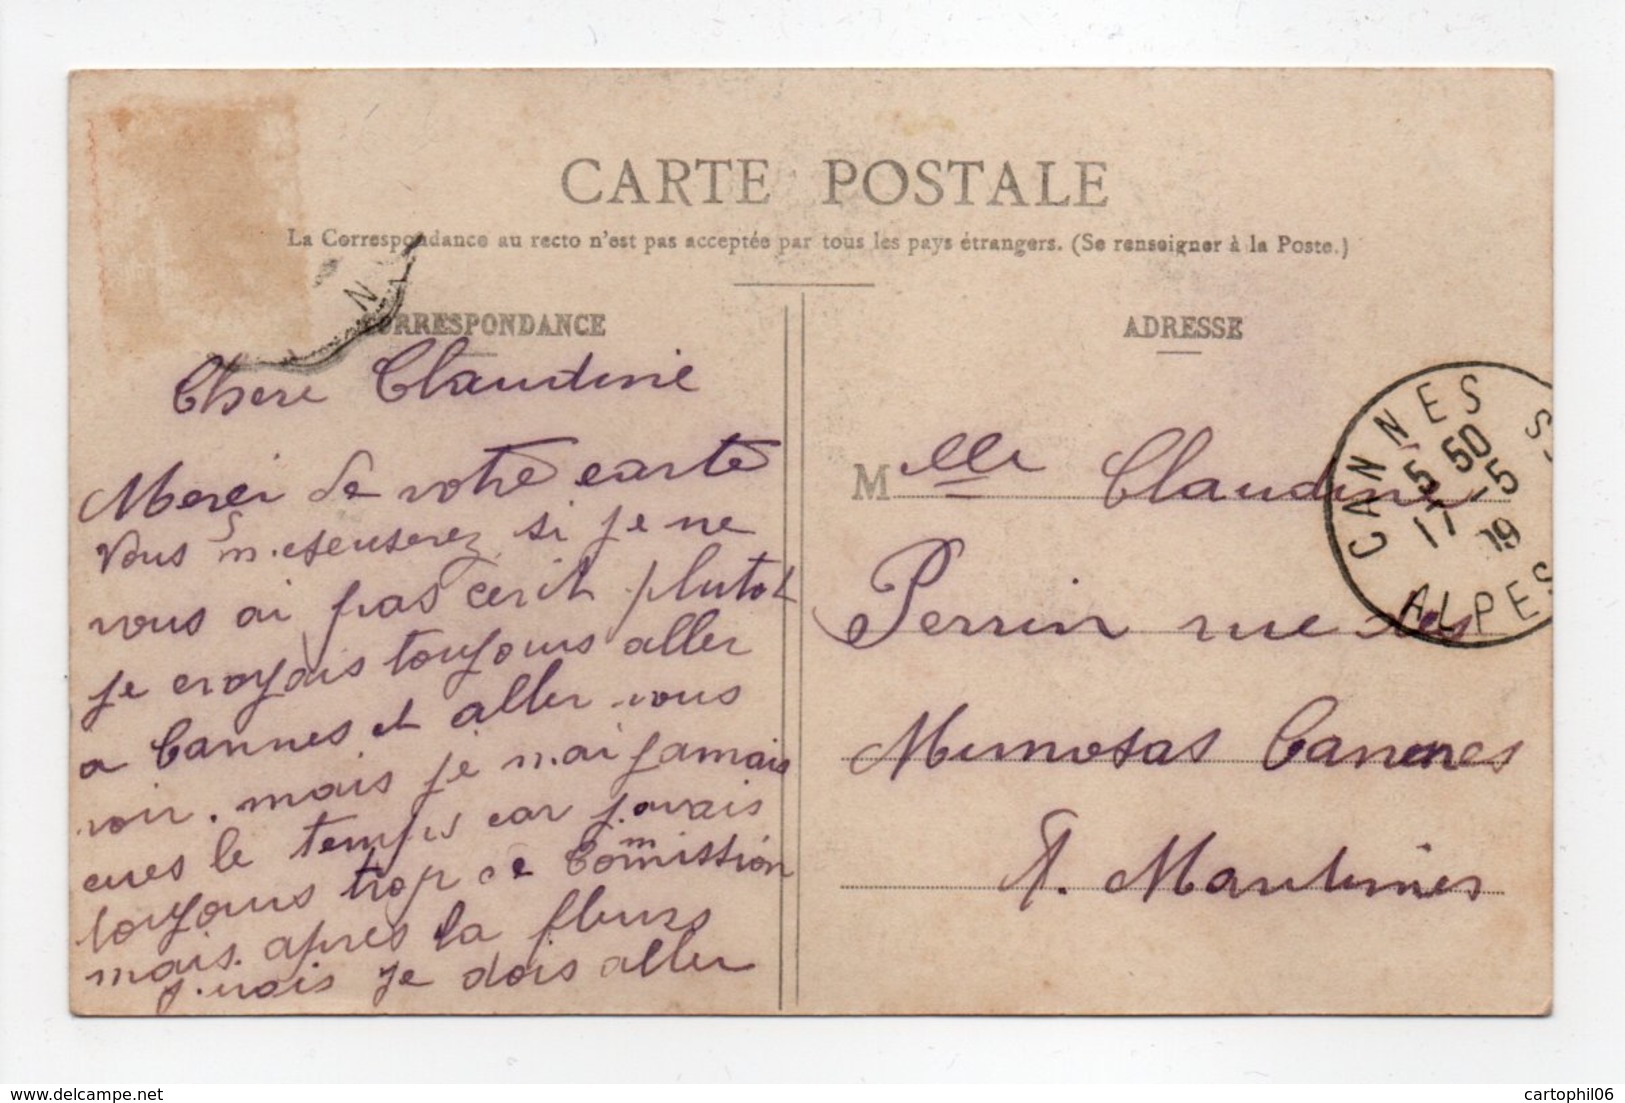 CARTE POSTALE
La Correspondance au recto n'est pas acceptée par tous les pays étrangers. (Se renseigner à la Poste.)
CORRESPONDANCE
Chere Claudine
Merci de votre carte
Vous m'escuserez si je ne
vous ai pas ecrit plutot
je croyais toujours aller
a Cannes et aller vous
voir. mais je n'ai jamais
eues le temps car j'avais
toujours trop de Commission
mais. apres la fleurs
j'irais je dois aller
ADRESSE
Mlle Claudine
Perrin rue des
Mimosas Cannes
A. Maritimes
CANNES
5 50
17 -5
19
ALPES
cartophil06